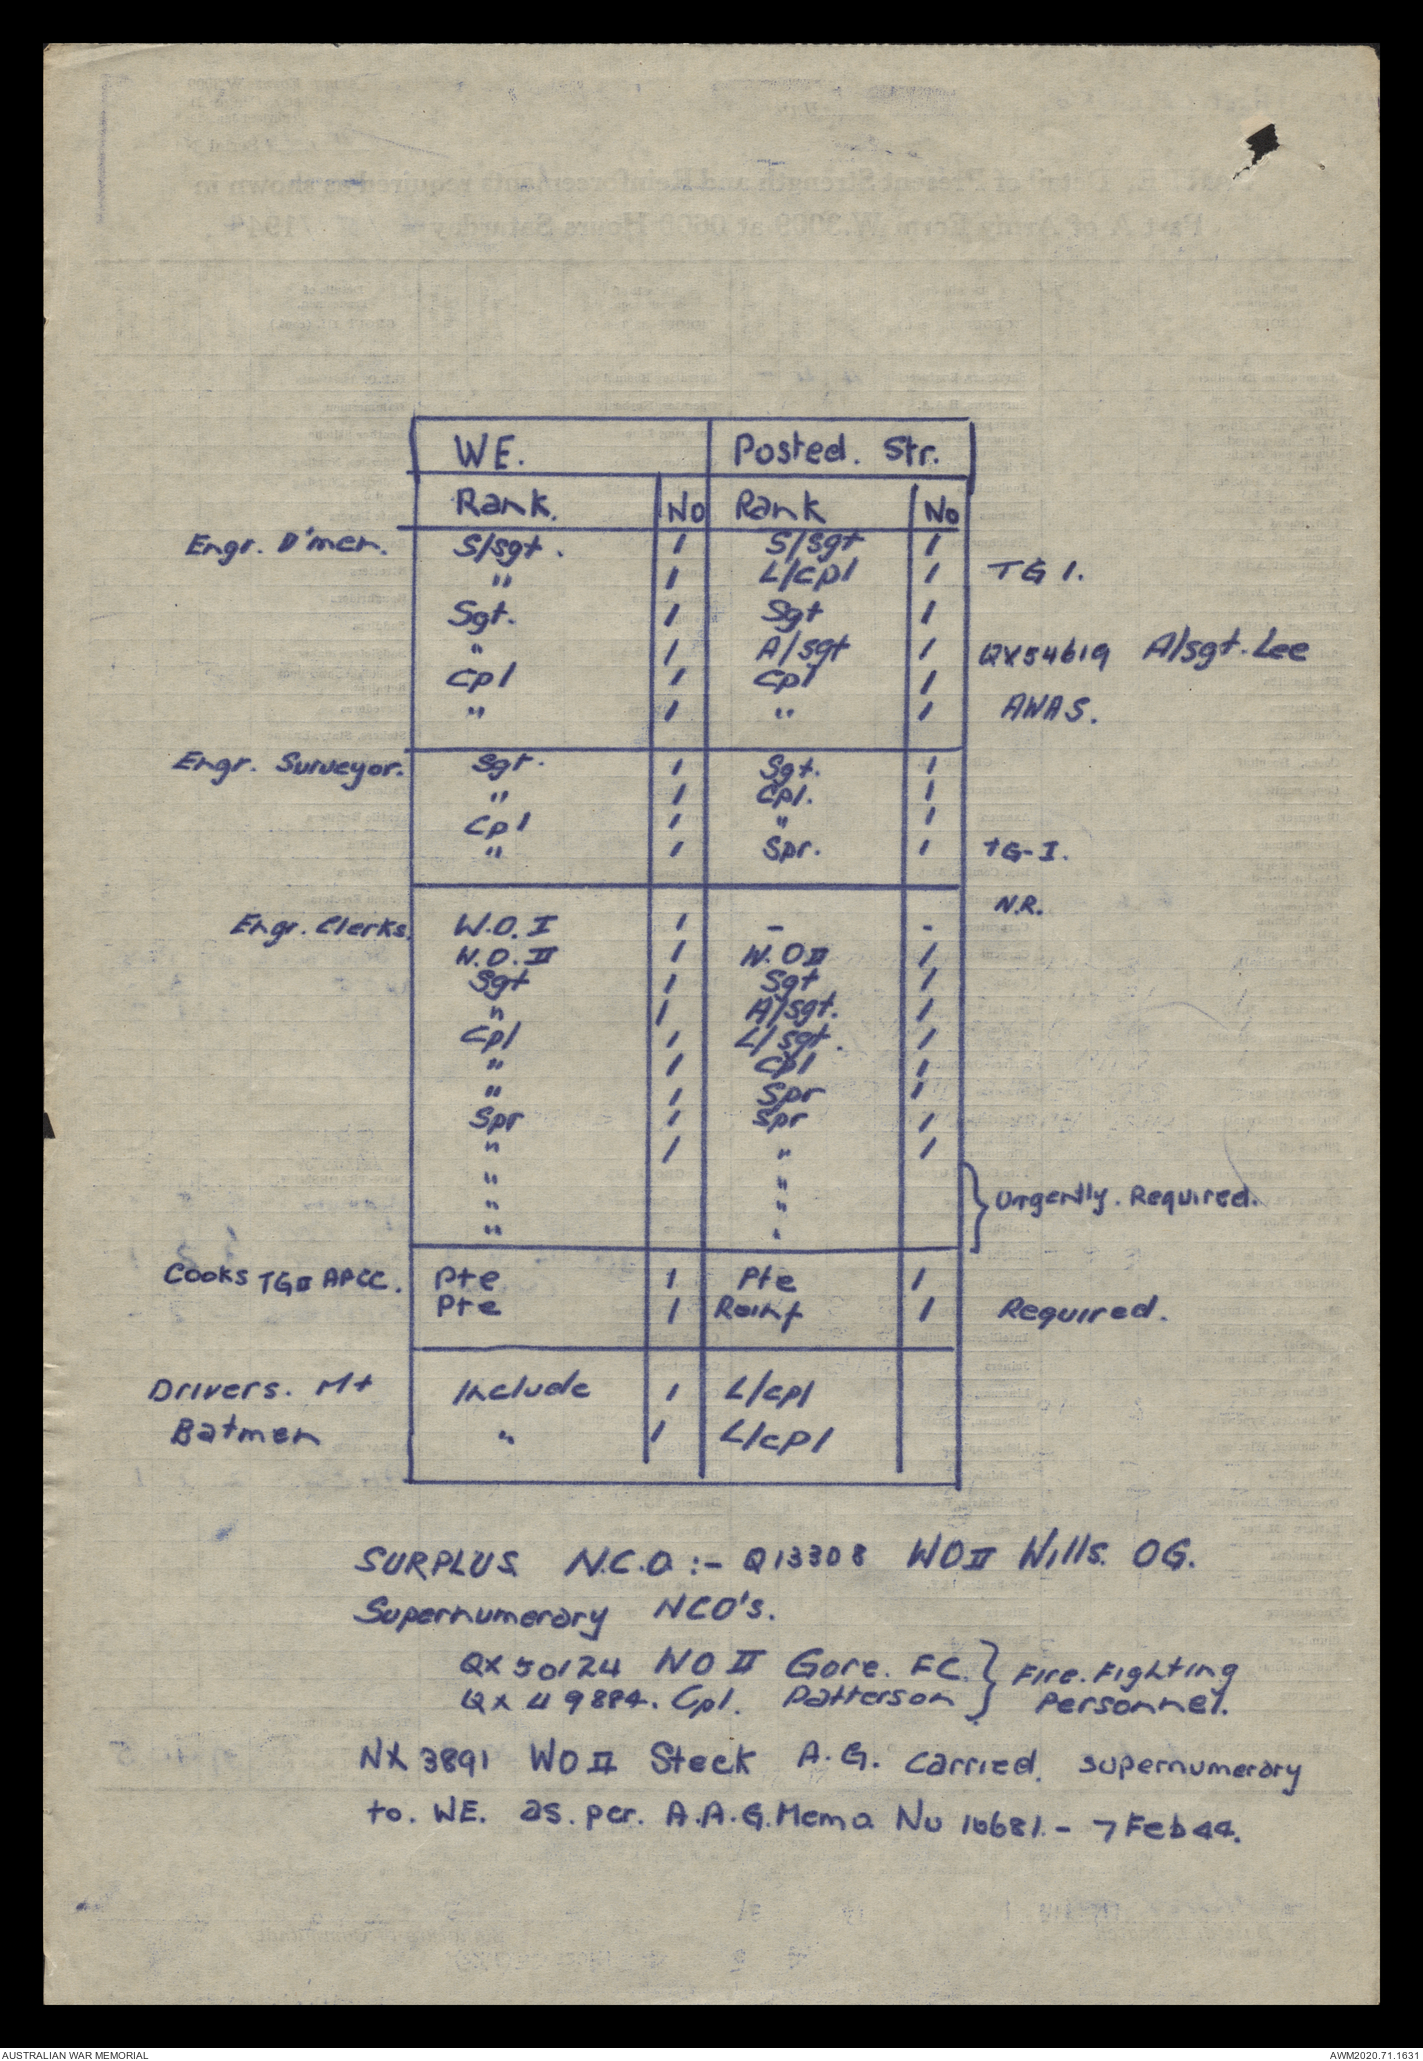 WE. Posted. Str.
Rank. No Rank No
Engr. D'men. S/sgt. 1 S/sgt 1
" 1 L/cpl 1 TG 1.
Sgt. 1 Sgt 1
" 1 A/sgt 1 QX54619 A/sgt. Lee
Cpl 1 Cpl 1
" 1 " 1 AWAS.
Engr. Surveyor. Sgt. 1 Sgt. 1
" 1 Cpl. 1
Cpl 1 " 1
" 1 Spr. 1 TG-I.
N.R.
Engr. Clerks. W.O. I 1 - -
W.O. II 1 W.O II 1
Sgt 1 Sgt 1
" 1 A/sgt. 1
Cpl 1 L/sgt. 1
" 1 Cpl 1
" 1 Spr 1
Spr 1 Spr 1
" 1 " 1
" "
" " } Urgently. Required.
" "
Cooks TG II APCC. Pte 1 Pte 1
Pte 1 Reinf 1 Required.
Drivers. Mt Include 1 L/cpl
Batmen " 1 L/cpl
SURPLUS N.C.O :- Q13308 WO II Wills. OG.
Supernumerary NCO's.
QX 50124 WO II Gore. FC. } Fire. Fighting
QX 49884. Cpl. Patterson } Personnel.
NX 3891 WO II Steck A.G. carried. supernumerary
to. WE. as. per. A.A.G. Memo No 10681. - 7 Feb 44.
AUSTRALIAN WAR MEMORIAL AWM2020.71.1631